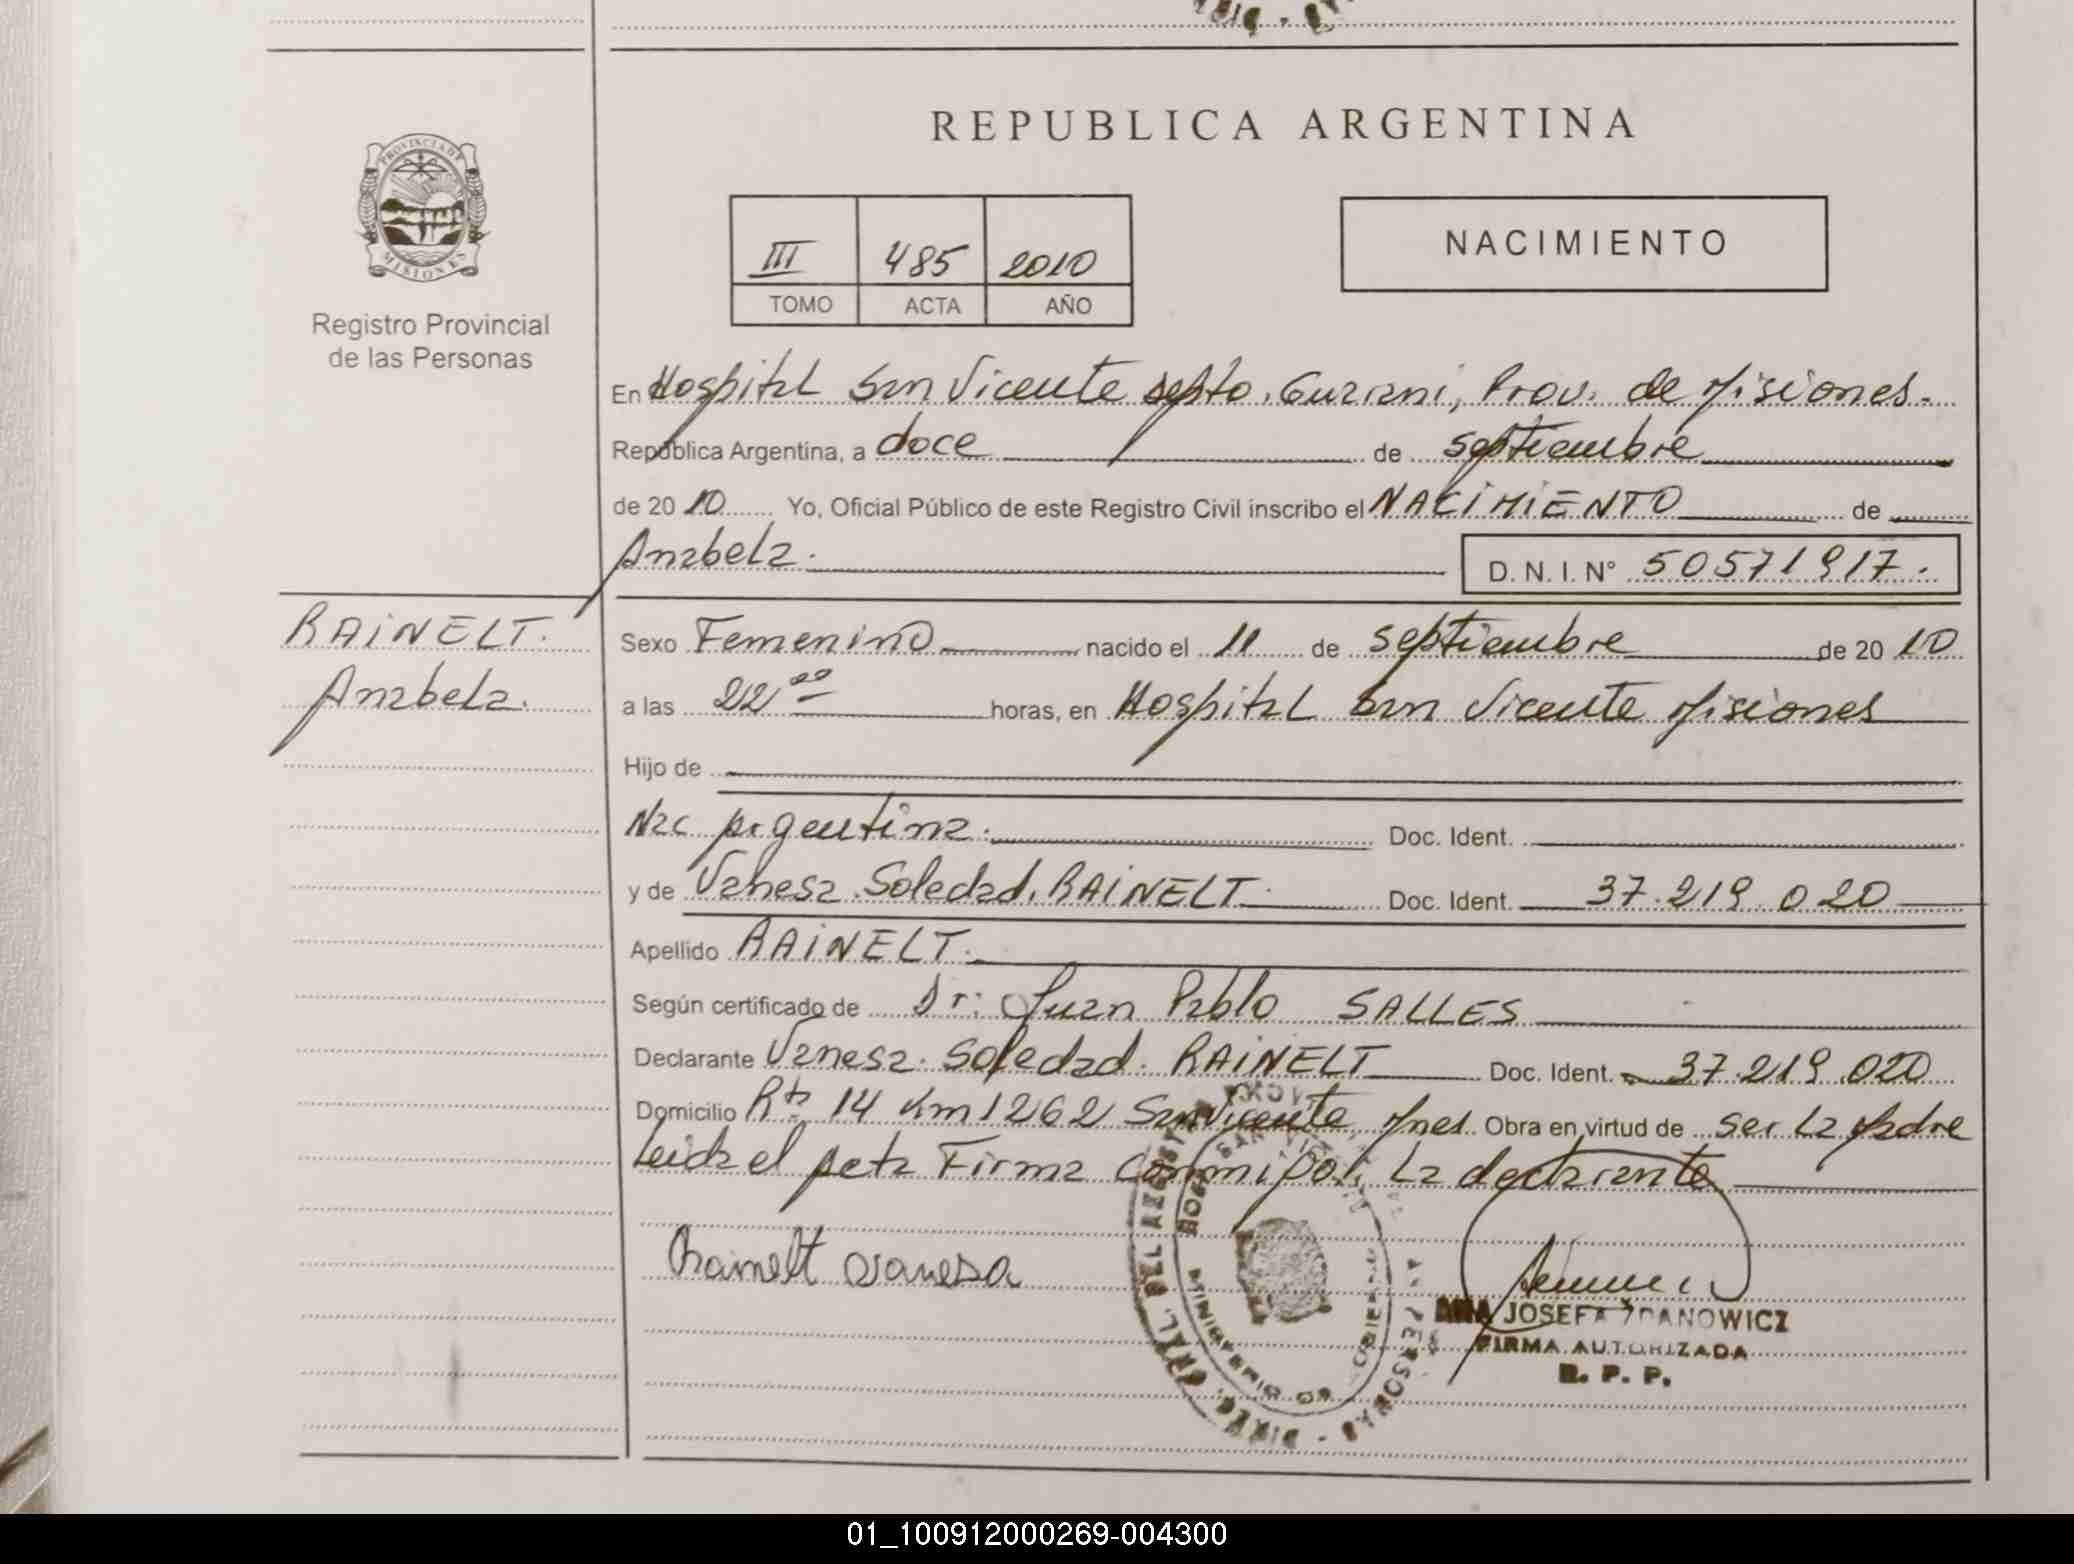 PROVINCIA DE
MISIONES
Registro Provincial
de las Personas
REPUBLICA ARGENTINA
III 485 2010
TOMO ACTA AÑO
NACIMIENTO
En Hospital San Vicente Depto. Guarani, Prov. de Misiones.
República Argentina, a doce de septiembre
de 20 10 Yo, Oficial Público de este Registro Civil inscribo el NACIMIENTO de
Anabela. D. N. I. N° 50571917.
RAINELT.
Anabela.
Sexo Femenino nacido el 11 de septiembre de 20 10
a las 22 00 horas, en Hospital San Vicente Misiones
Hijo de
Nac Argentina. Doc. Ident.
y de Vanesa Soledad. RAINELT. Doc. Ident. 37.219.020
Apellido RAINELT.
Según certificado de Dr: Juan Pablo SALLES
Declarante Vanesa. Soledad. RAINELT Doc. Ident. 37.219.020
Domicilio Rta 14 Km 1262 San Vicente, Mnes. Obra en virtud de ser la Madre
Leida el Acta Firma conmigo, la declarante
Rainelt Vanesa
ANA JOSEFA ZDANOWICZ
FIRMA AUTORIZADA
R. P. P.
01_100912000269-004300